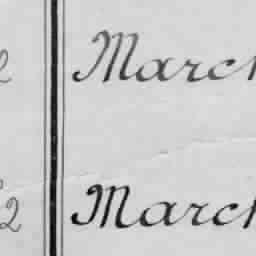 March
2 March